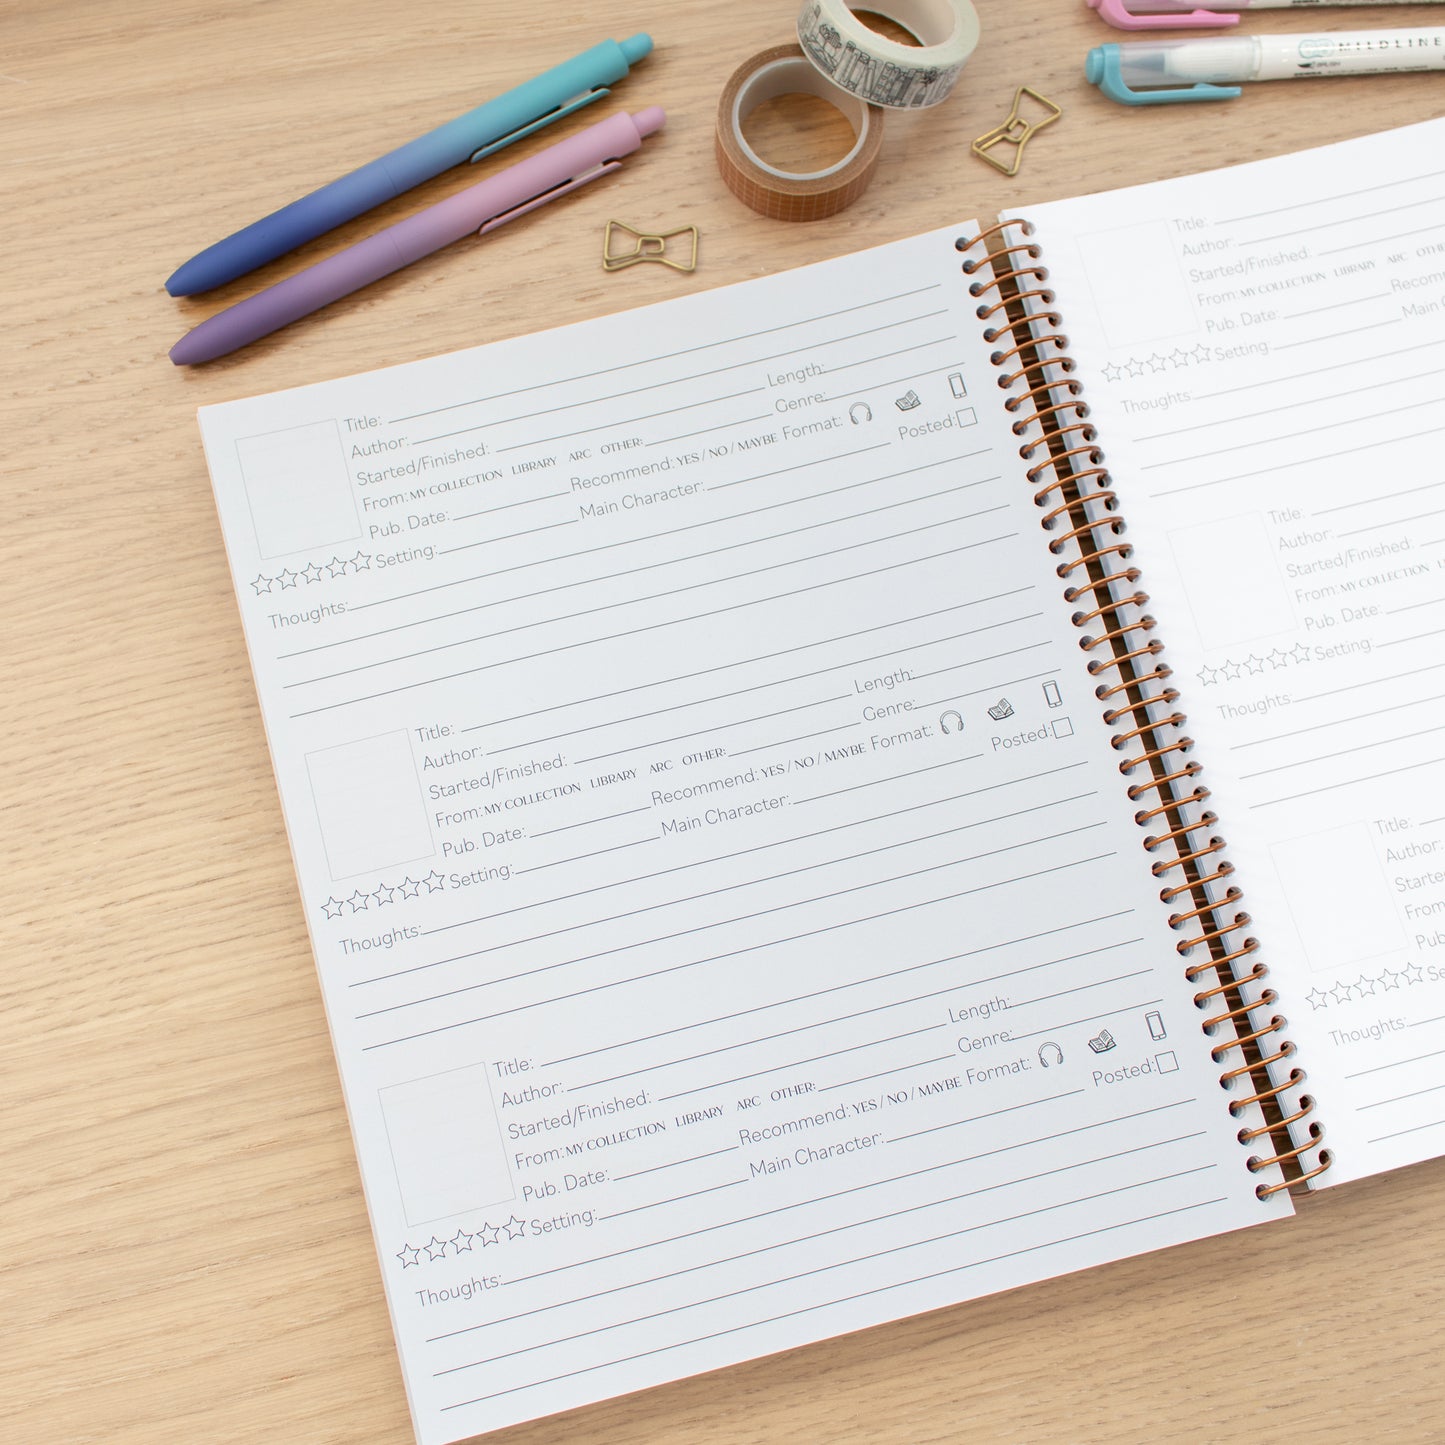 MILDLINE
BRUSH
Title:
Author: Length:
Started/Finished: Genre:
From: MY COLLECTION LIBRARY ARC OTHER: Format:
Pub. Date: Recommend: YES / NO / MAYBE Posted:
Setting: Main Character:
Thoughts:
Title:
Author: Length:
Started/Finished: Genre:
From: MY COLLECTION LIBRARY ARC OTHER: Format:
Pub. Date: Recommend: YES / NO / MAYBE Posted:
Setting: Main Character:
Thoughts:
Title:
Author: Length:
Started/Finished: Genre:
From: MY COLLECTION LIBRARY ARC OTHER: Format:
Pub. Date: Recommend: YES / NO / MAYBE Posted:
Setting: Main Character:
Thoughts:
Title:
Author:
Started/Finished:
From: MY COLLECTION LIBRARY ARC OTHE
Pub. Date: Recom
Setting Main
Thoughts:
Title:
Author:
Started/Finished:
From: MY COLLECTION LI
Pub. Date:
Setting:
Thoughts:
Title:
Author:
Starte
From
Pub
Se
Thoughts: